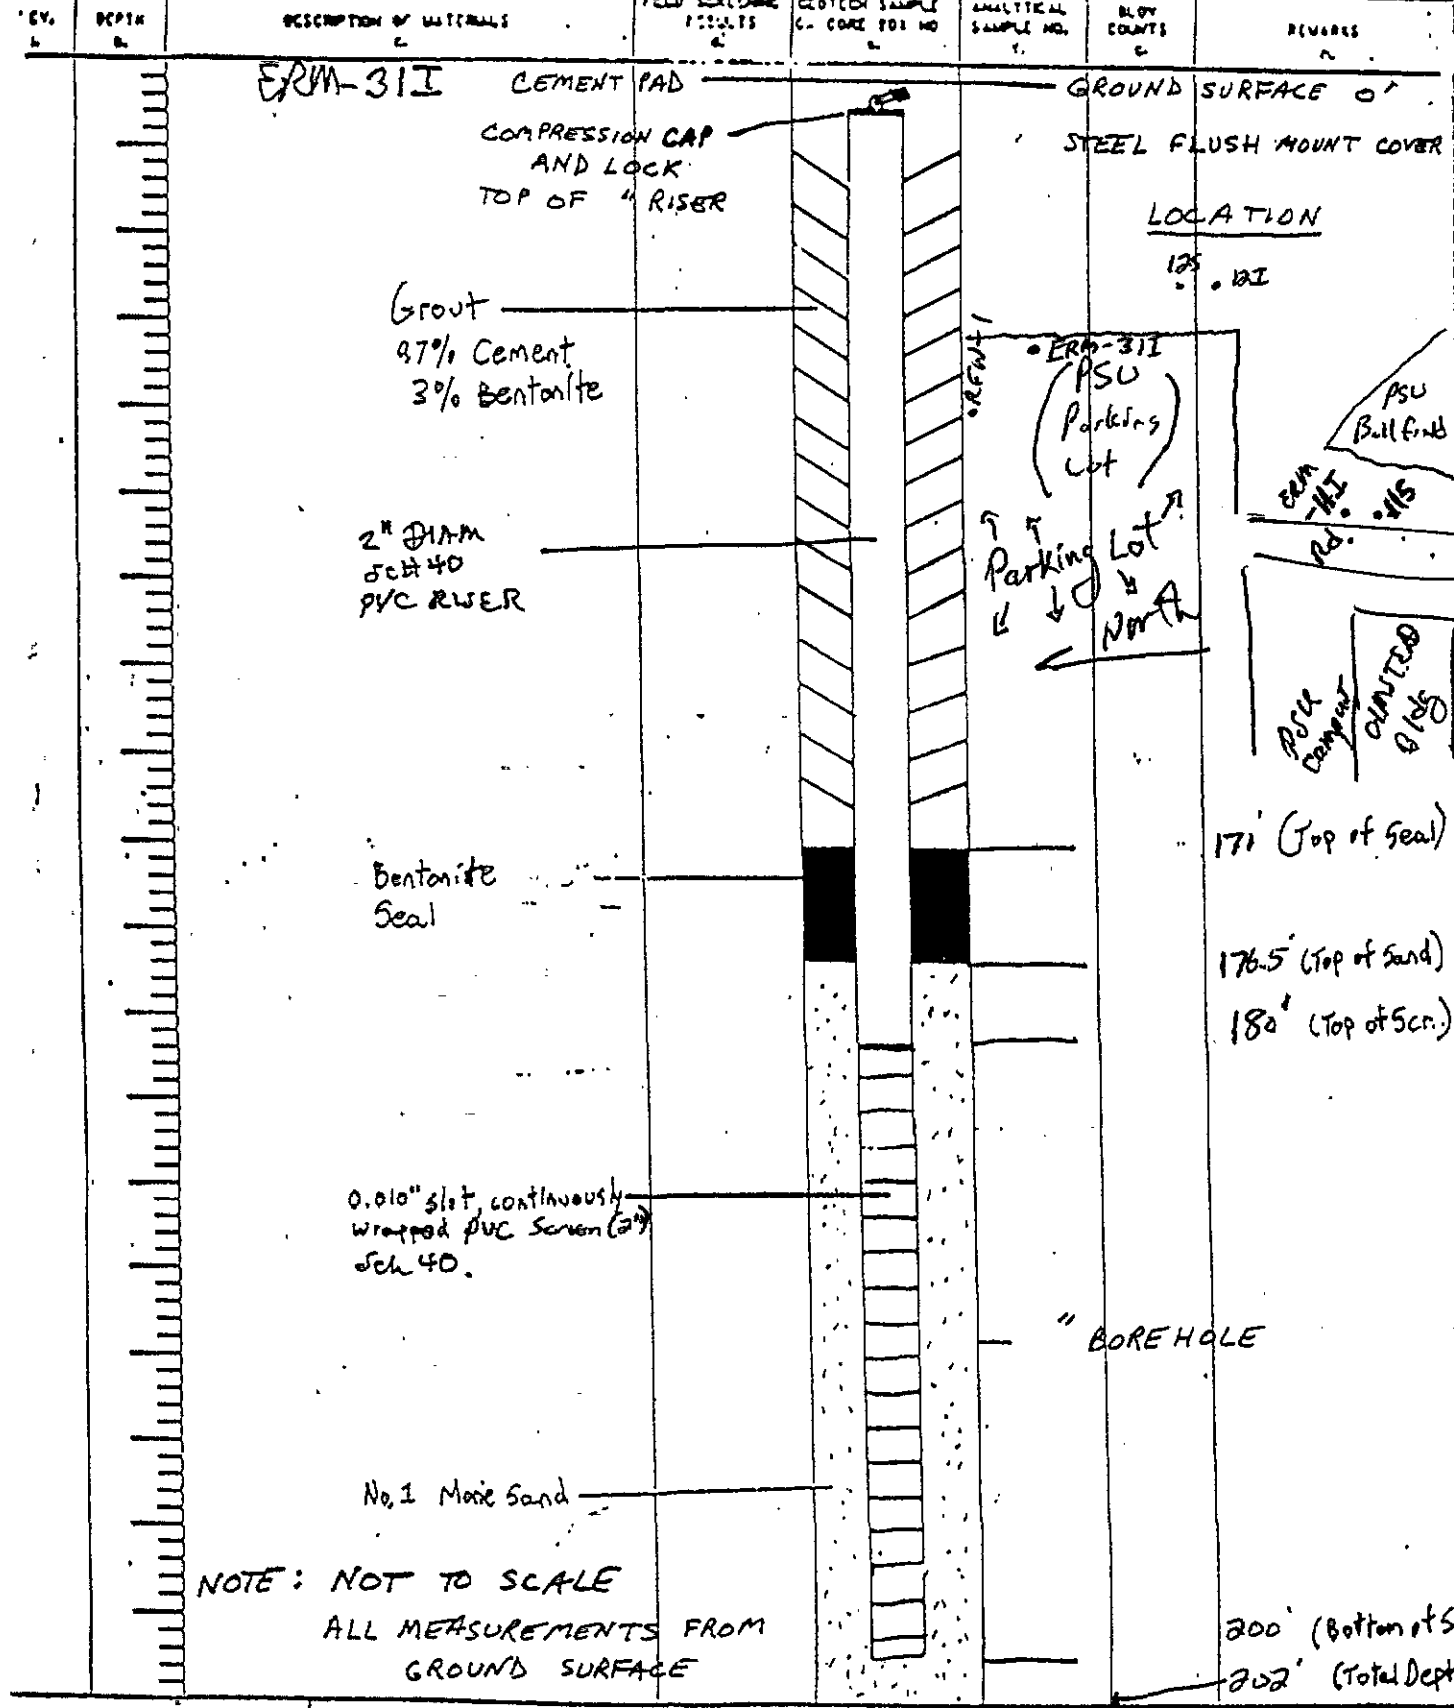 DEPTH
DESCRIPTION OF MATERIALS
RESULTS
GEOTECH SAMPLE
ANALYTICAL
SAMPLE NO.
BLOW
COUNTS
REMARKS
ERM-31I
CEMENT PAD
GROUND SURFACE 0'
COMPRESSION CAP
AND LOCK
TOP OF " RISER
STEEL FLUSH MOUNT COVER
LOCATION
12S
12I
Grout
97% Cement
3% Bentonite
ERM-31I
PSU
Parking
Lot
PSU
ERM
-11I
11S
Rd.
2" DIAM
SCH 40
PVC RISER
Parking Lot
North
PSU
OLMSTED
Bldg
171' (Top of Seal)
Bentonite
Seal
176.5' (Top of Sand)
180' (Top of Scr.)
0.010" slot, continuously
wrapped PVC Screen (2")
Sch 40.
" BOREHOLE
No. 1 Morie Sand
NOTE: NOT TO SCALE
ALL MEASUREMENTS FROM
GROUND SURFACE
200' (Bottom of S
202' (Total Dept